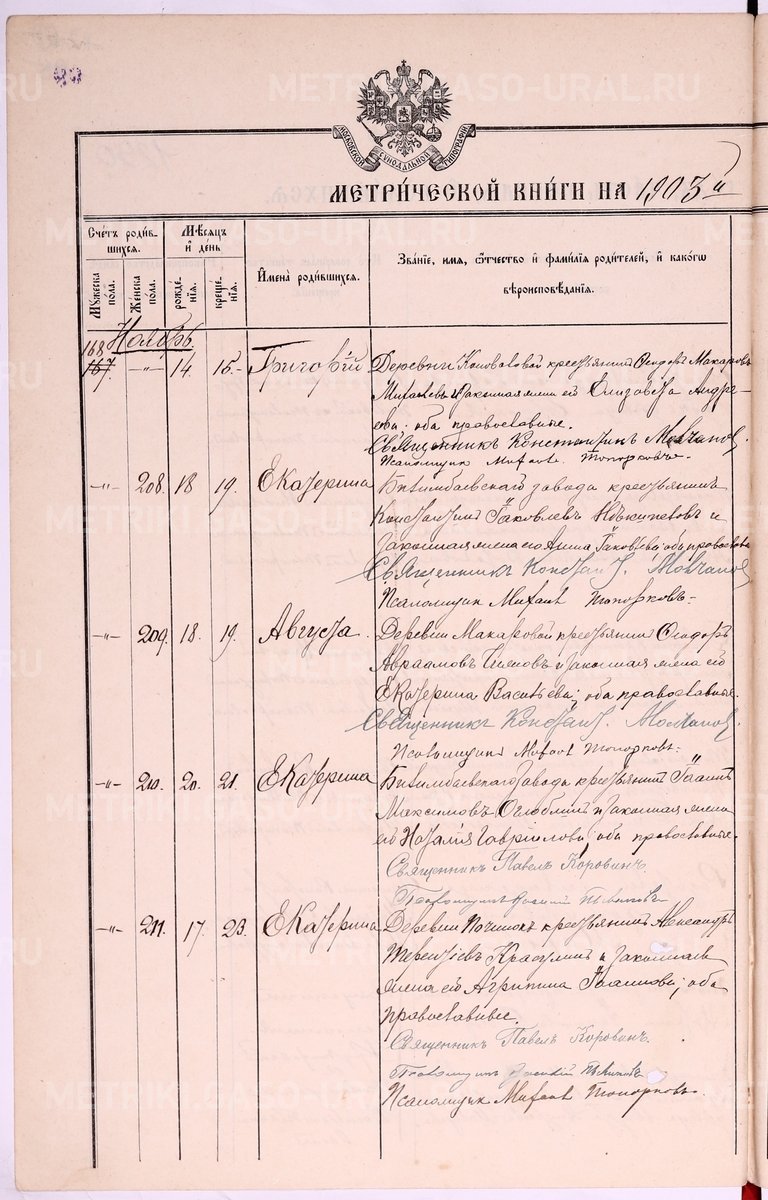 МОСКОВСКОЙ СѴНОДАЛЬНОЙ ТИПОГРАФІИ
МЕТРИ́ЧЕСКОЙ КНИ́ГИ НА 1903 й
Сче́тъ роди́вшихся.
Мꙋ́жеска по́ла.
Же́нска по́ла.
Мѣ́сяцъ и де́нь
рожде́нія.
креще́нія.
Имена̀ роди́вшихся.
Зва́ніе, имя, Ѻ҆́тчество и фами́лія роди́телей, и како́гѡ вѣроисповѣ́данія.
Ноябрь.
168
167. —„— 14. 15. Григорій Деревни Коноваловой крестьянинъ Ѳеодоръ Макаровъ
и законная жена его Елизавета Андре-
ева; оба православные.
Священникъ Константинъ Молчанов.
Псаломщикъ Михаил Топорковъ.
—„— 208. 18 19. Екатерина Билимбаевскаго завода крестьянинъ
Константинъ Іаковлевъ и
законная жена его Анна Іаковлева; оба православн
Священникъ Констант. Молчанов
Псаломщик Михаил Топорковъ.
—„— 209. 18. 19. Августа. Деревни Макаровой крестьянинъ Ѳеодоръ
Авраамовъ и законная жена его
Екатерина Васильева; оба православные.
Священникъ Констант. Молчанов.
Псаломщикъ Михаил Топорковъ.
—„— 210. 20. 21. Екатерина Билимбаевскаго завода крестьянинъ Іоаннъ
Максимовъ Оглоблинъ и законная жена
его Наталія Гавріилова; оба православные.
Священникъ Павелъ Коровинъ.
—„— 211. 17. 23. Екатерина Деревни Починокъ крестьянинъ Александръ
Терентіевъ и законная
жена его Агрипина Іоаннова; оба
православные.
Священникъ Павелъ Коровинъ.
Псаломщик Михаил Топорковъ.